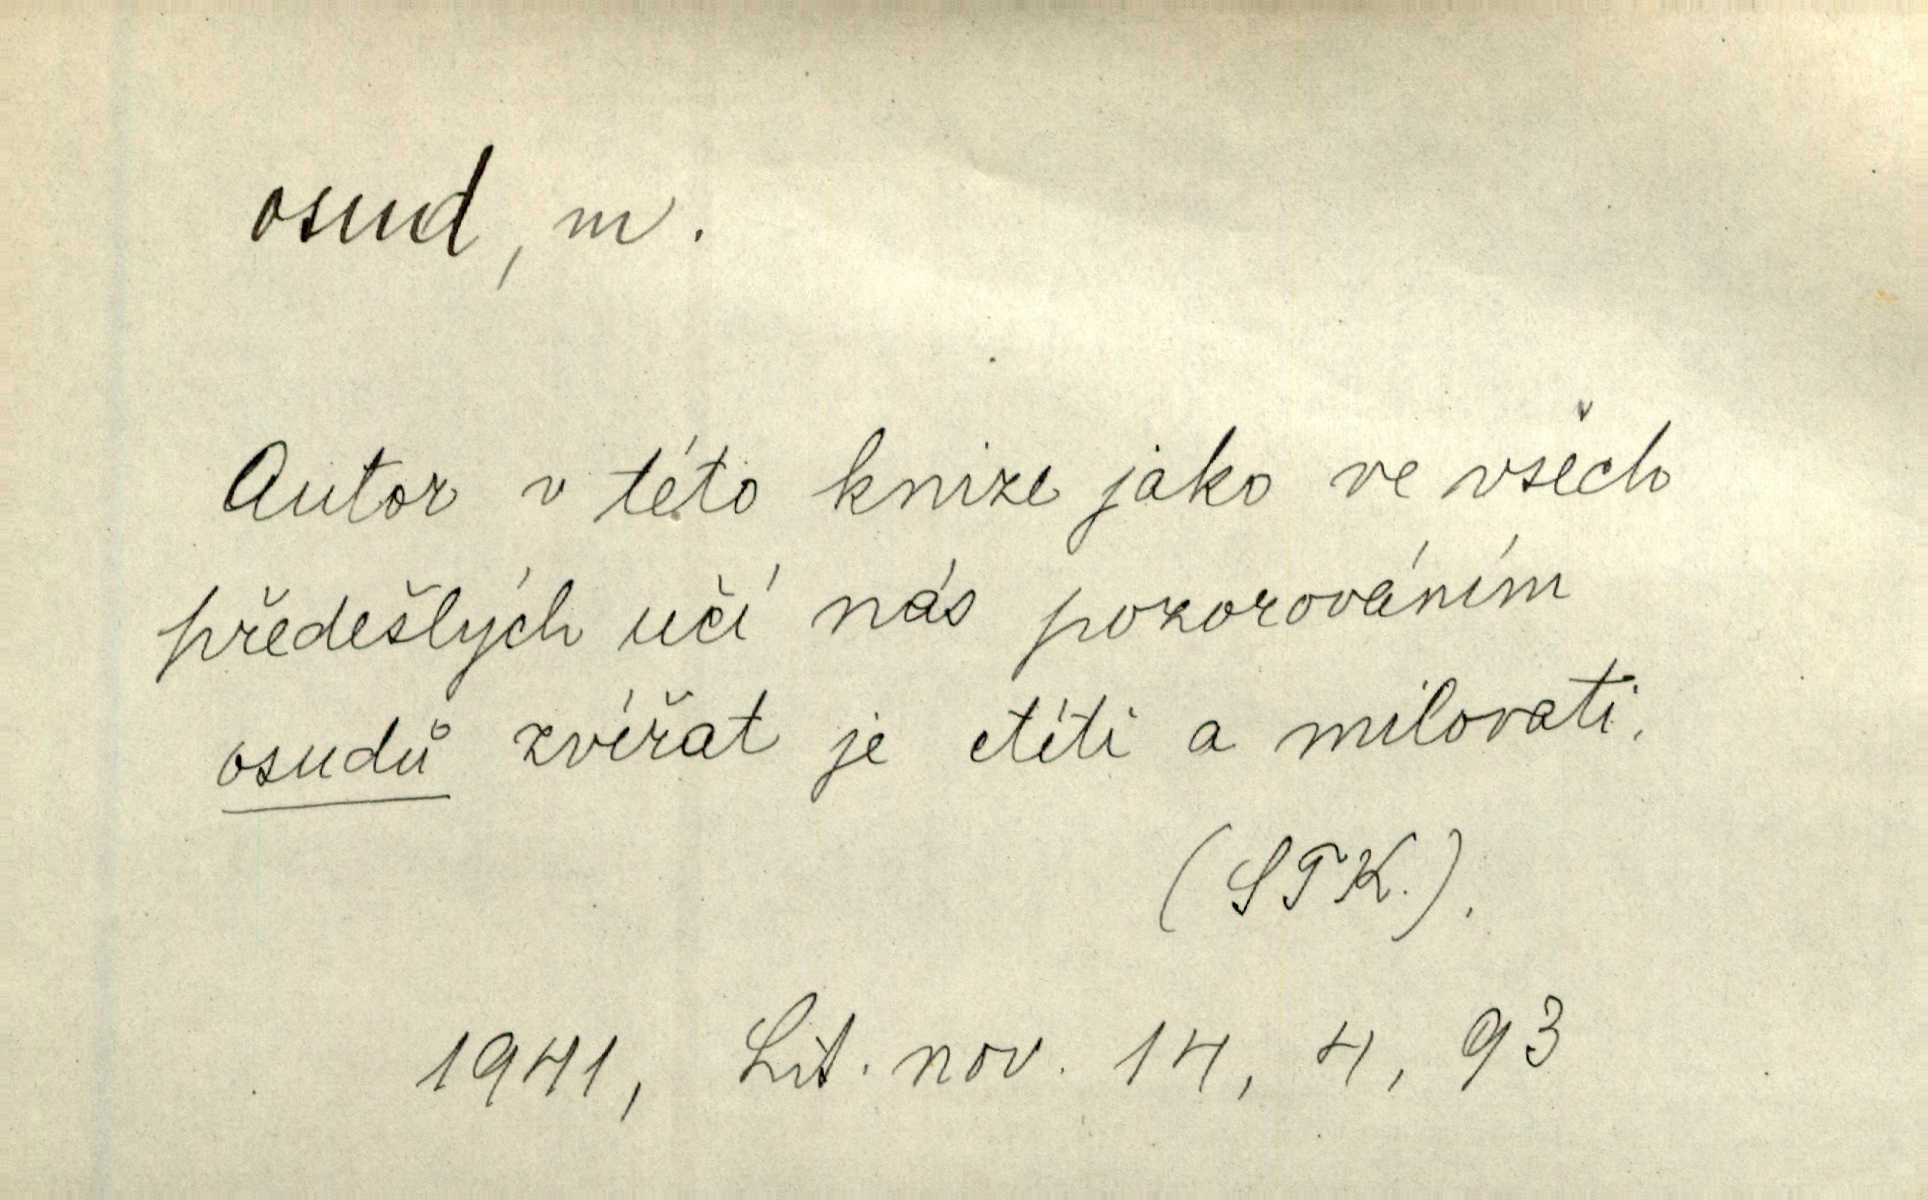 osud, m.
Autor v této knize jako ve všech
předešlých učí nás pozorováním
osudů zvířat je ctíti a milovati.
(STK.).
1941, Lit. nov. 14, 4, 93